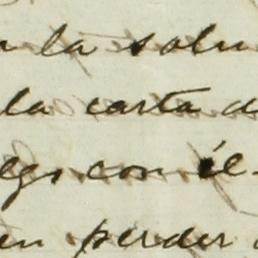 la salu
la carta d
ego con él
en perder